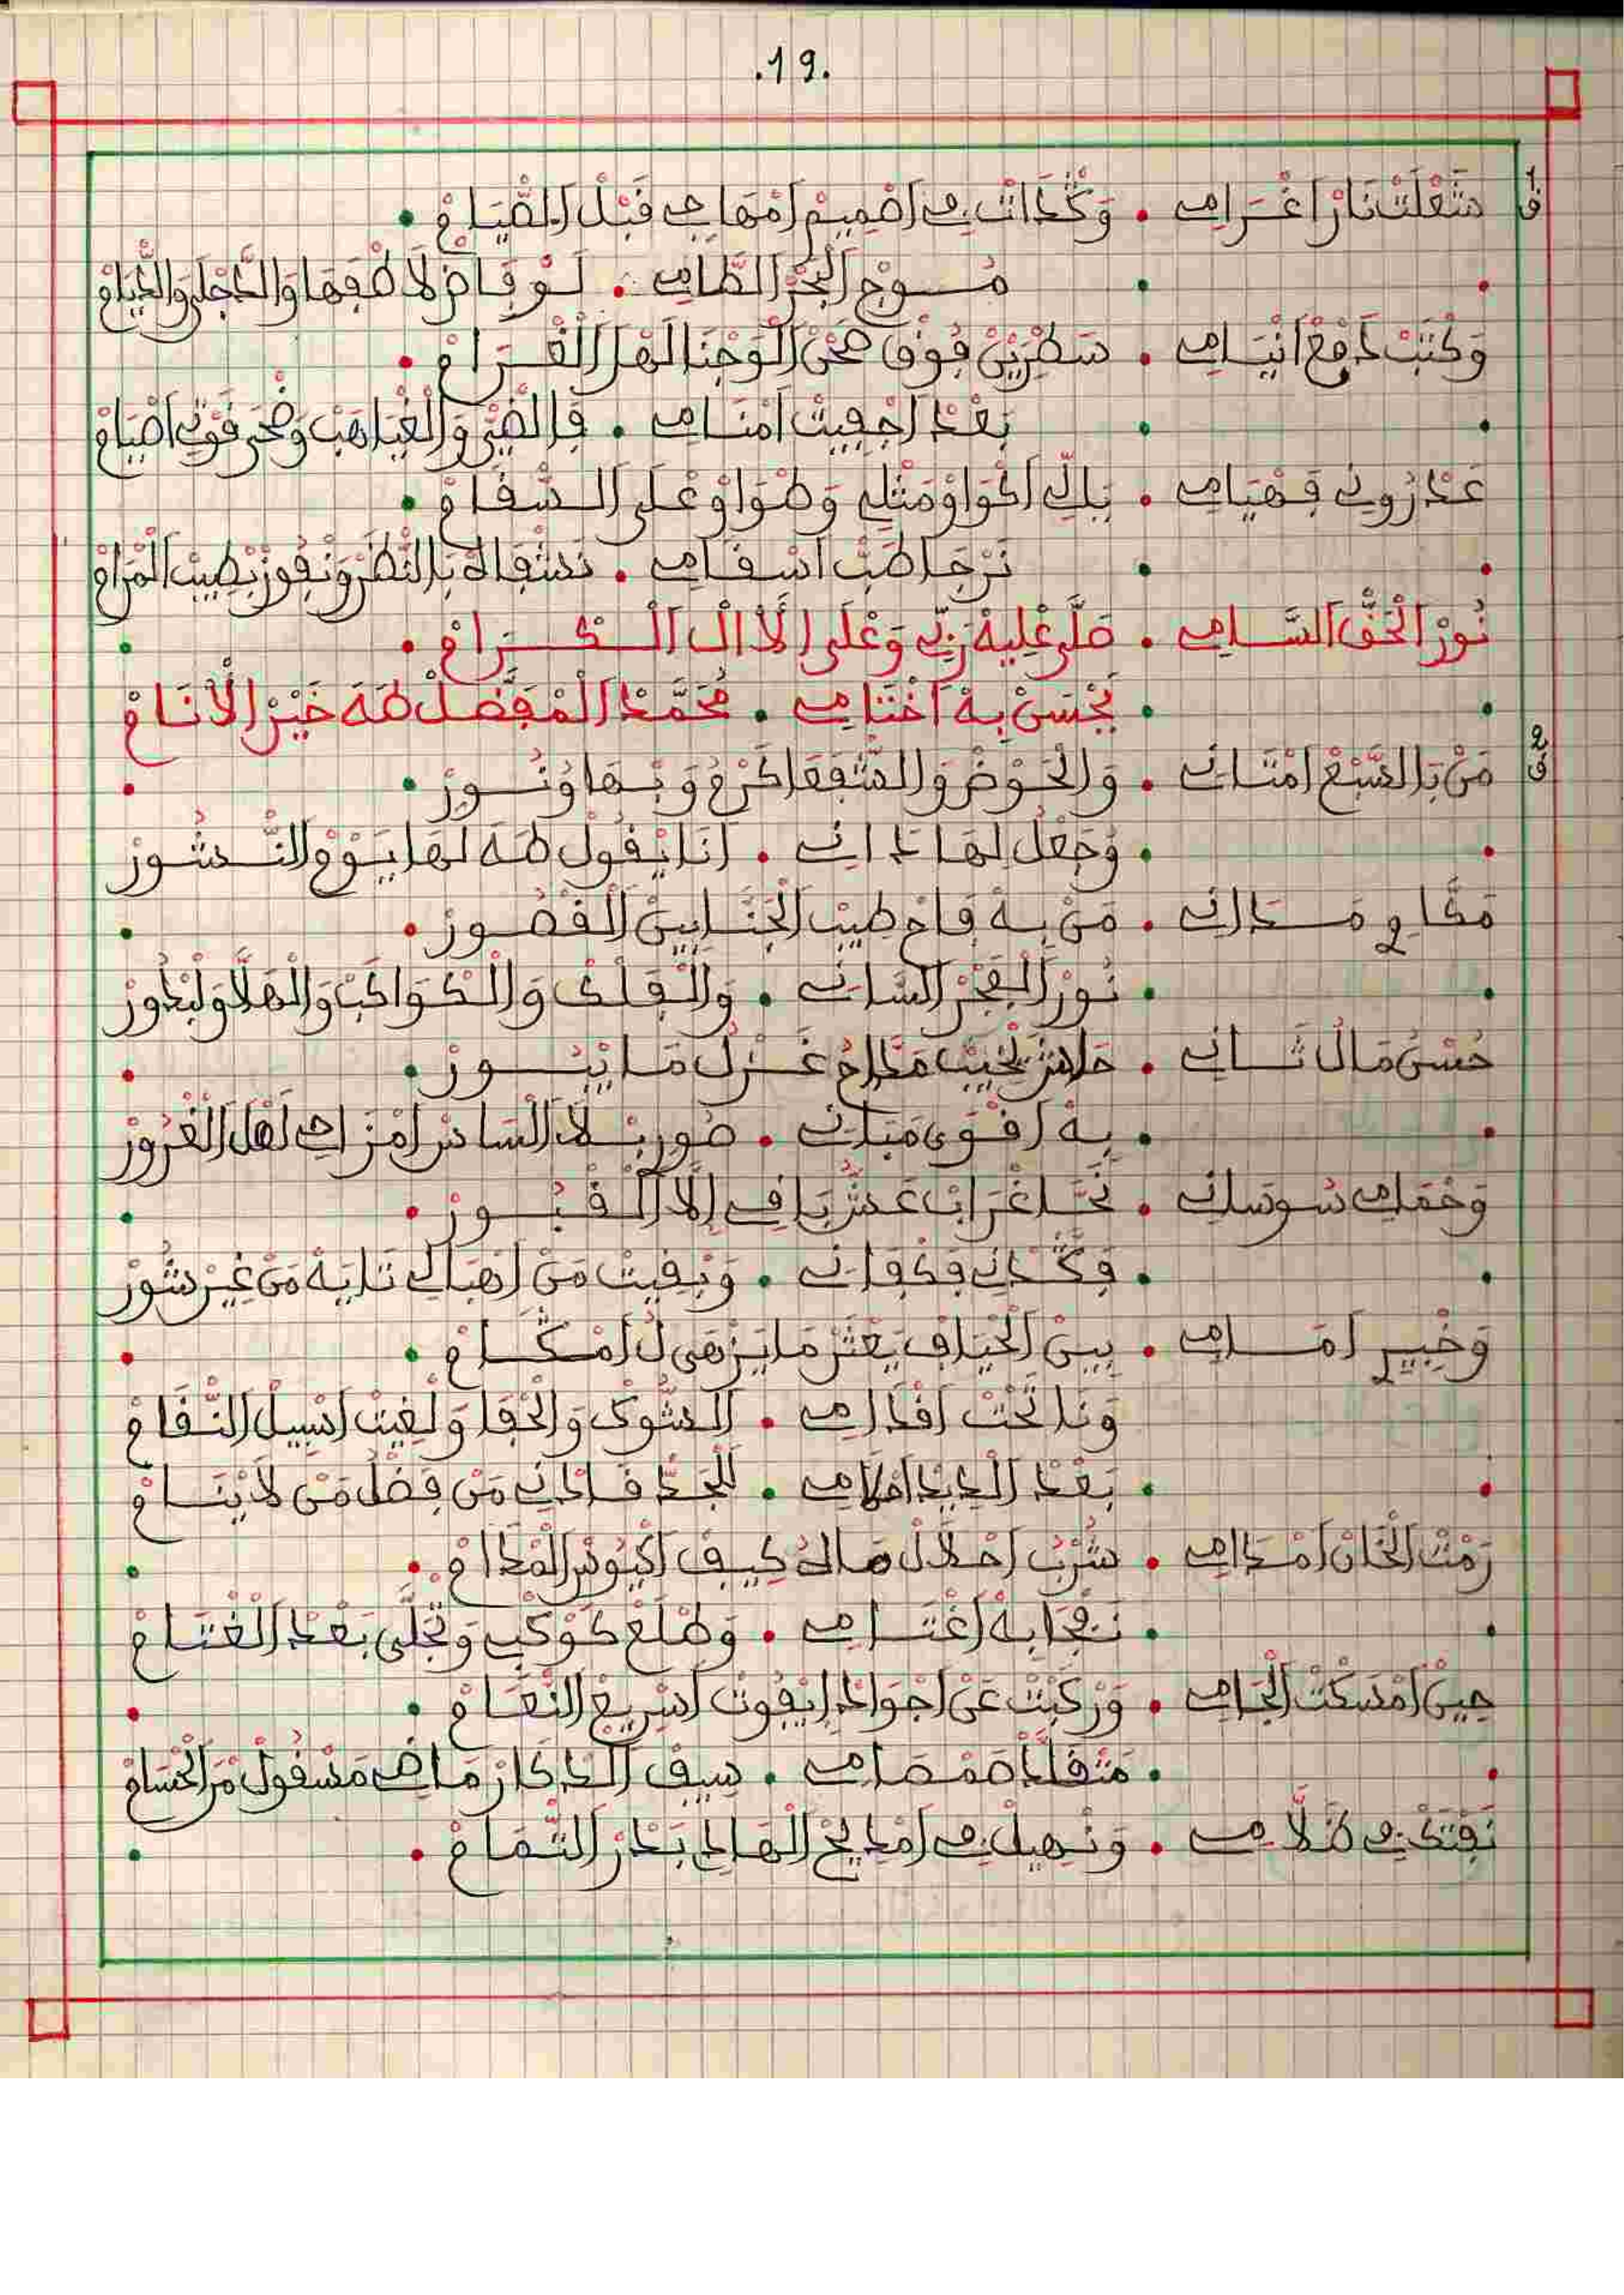 .19.
ق1 شَعْلَتْ نَارْ اغْرَامِي . وَكْدَاتْ فِي اصْمِيمْ امْهَاجِي قَبْلْ الصْيَامْ .
مُوجْ الْبَحْرْ الطَّامِي . لَوْ فَاضْ لَا طْفَهَا وَالدَّجْلَى وَالدْيَامْ
وَكْتَبْ دَمْعْ انْيَامِي . سَطْرِينْ فُوقْ صَحْنْ الْوَجْنَا لَهْلْ الْغْرَامْ .
بَعْدْ اجْفِيتْ امْنَامِي . فَالضَّيْ وَالْغْيَاهَبْ وَضْحَى قُوتِي اصْيَامْ
عَدْرُونِي فَهْيَامِي . يَاللِّي اكْوَاوْ مَثْلِي وَطْوَاوْ عْلَى السْقَامْ .
نَرْجَا طَبْ اسْقَامِي . نَشْفَالَهْ بَالنّْظَرْ وَنْفُوزْ بْطِيبْ الْمْرَامْ
نُورْ الْحَقّْ السَّامِي . صَلَّى عْلِيهْ رَبِّي وَعْلَى الْآلْ الْكْرَامْ .
يَحْسَنْ بِهْ اخْتَامِي . مُحَمَّدْ الْمْفَضَّلْ طَهَ خَيْرْ الْأَنَامْ
ق2 مَنْ بَالسَّبْعْ امْتَانِي . وَالْحَوْضْ وَالشّْفَعَا كَرْمُ وَبْهَا وْنُورْ .
وَجْعَلْ لِهَا دَانِي . أَنَا يْقُولْ طَهَ لَهَا يَوْمْ النّْشُورْ
مَدَّاحِ مَدَانِي . مَنْ بِهْ فَاحْ طِيبْ الْجَنَّا بِينْ الْقْصُورْ .
نُورْ الْفَجْرْ السَّانِي . وَالْفَلْكْ وَالْكْوَاكَبْ وَالْهَلَّا وَلَبْدُورْ
حُسْنُ مَالُ ثَانِي . حَاشَا يْخِيبْ مَدَّاحُ غَزْلُ مَا يْبُورْ .
بِهْ اقْوَى مَبَانِي . صُورْ بْلَا سَاسْ امْزَاجِي لَهْلْ الْغْرُورْ
وَحْمَامِي سُوسَانِي . نَحَّا غْرَابْ عَشْ بَاقِي إِلَّا الْقْبُورْ .
وَكْدَانِي وَكْوَانِي . وَبْقِيتْ مَنْ اهْبَالِي تَايَهْ مَنْ غِيرْ شُورْ
وَخْبِيرِ امَامِي . بِينْ الْحْيَافْ يَعْثَرْ مَا يَزْهَى لُ امْكَامْ .
وَنَا تَحْتْ اقْدَامِي . الشُّوكْ وَالْحْفَا وَلْغِيتْ اسْبِيلْ النّْقَامْ
بَعْدْ الدِيدْ احْلَامِي . لَلْجَدّْ قَادْنِي مَنْ فَضْلُ مَنْ لَا يْنَامْ
رَمْتْ الْخَانْ امْدَامِي . شُرْبْ احْلَالْ صَالَهْ كِيفْ اكْيُوسْ الْمْدَامْ .
نَفْجَا بِهْ اغْتَامِي . وَطْلَعْ كَوْكْبِي وَتْجَلَّى بَعْدْ الْغْتَامْ
حِينْ امْسَكْتْ الْجَامِي . وَرْكَبْتْ عَنْ اجْوَادْ إِيفُوتْ اسْرِيعْ النّْعَامْ .
مَتْقَلَّدْ صَمْصَامِي . سِيفْ الدْكَارْ مَاضِي مَسْقُولْ مَنْ الْحْسَامْ
نَفْتَحْ فِي كَلَامِي . وَنْهِيلْ فِي امْدِيحْ الْهَادِي بَدْرْ التّْمَامْ .